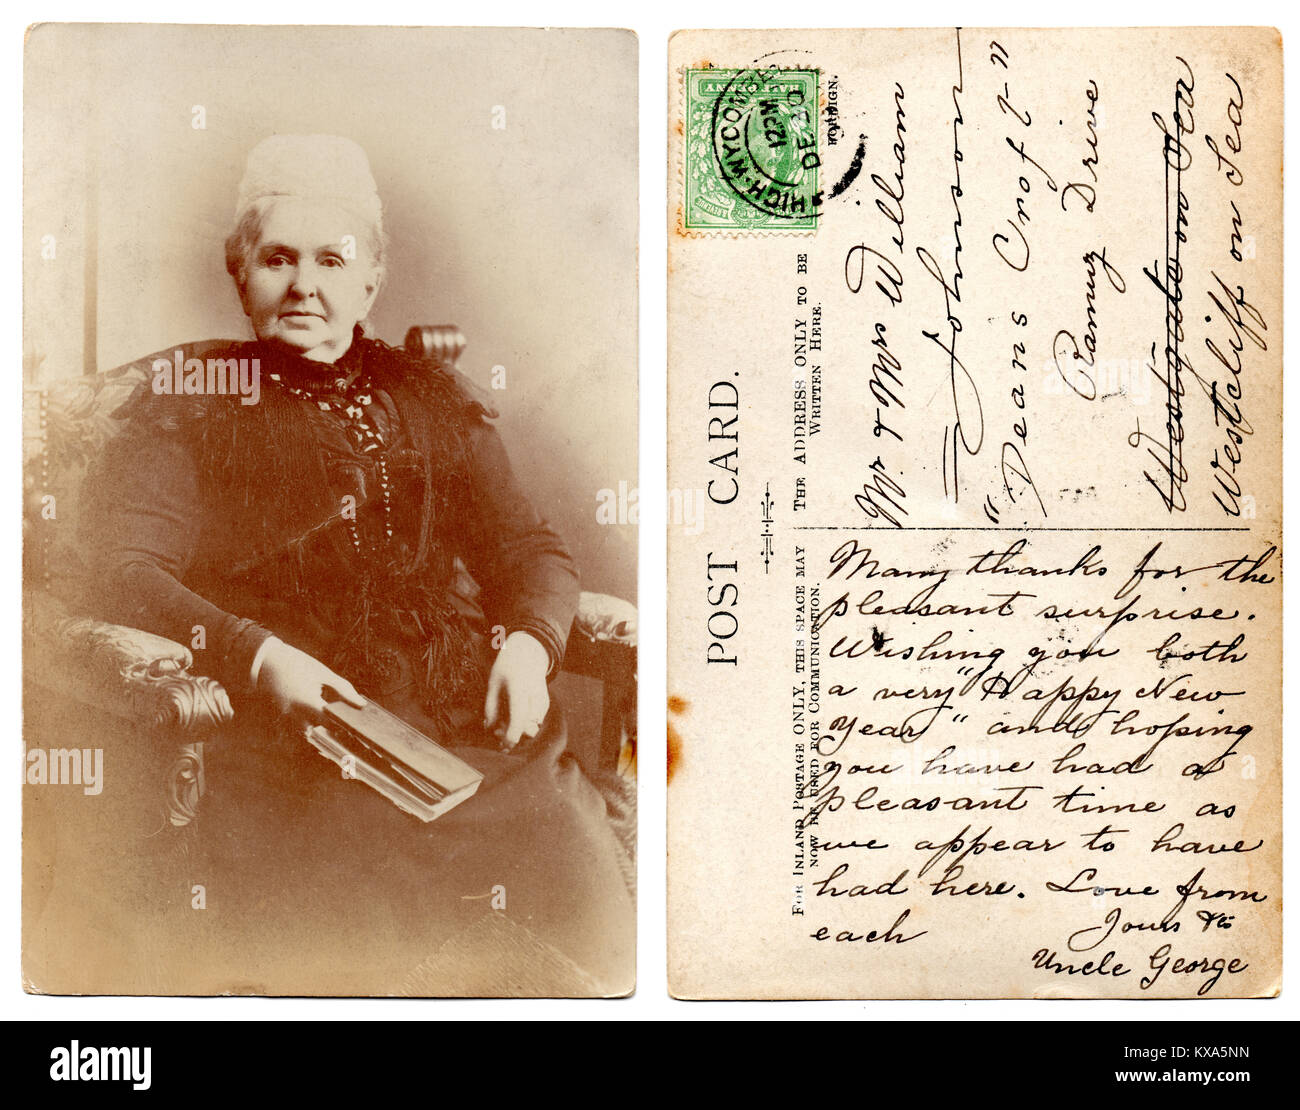 POST CARD.
FOR INLAND POSTAGE ONLY, THIS SPACE MAY
NOW BE USED FOR COMMUNICATION.
THE ADDRESS ONLY TO BE
WRITTEN HERE.
FOREIGN.
HALF PENNY
HIGH-WYCOMBE
12 PM
DE 30
Mr & Mrs William
Johnson
"Deans Croft"
Ramuz Drive
Westgate on Sea
Westcliff on Sea
Many thanks for the
pleasant surprise.
Wishing you both
a very "Happy New
Year" and hoping
you have had a
pleasant time as
we appear to have
had here. Love from
each
Yours &c
Uncle George
alamy
alamy
alamy
Image ID: KXA5NN
www.alamy.com